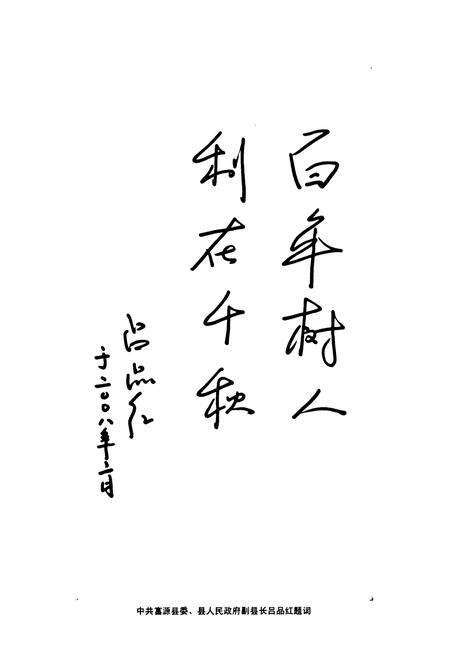 百年树人
利在千秋
吕品红
于二〇〇八年二月
中共富源县委、县人民政府副县长吕品红题词